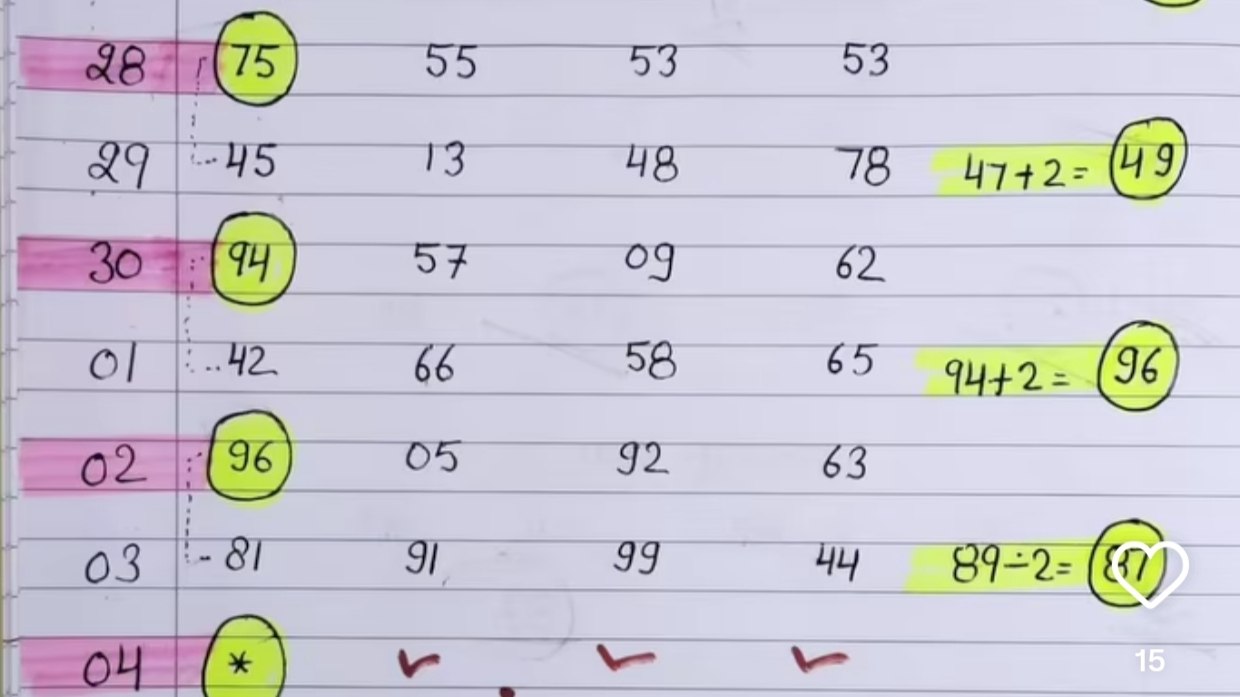 28 75 55 53 53
29 45 13 48 78 47+2= 49
30 94 57 09 62
01 42 66 58 65 94+2= 96
02 96 05 92 63
03 81 91 99 44 89÷2= 87
04 * ✓ ✓ ✓
15